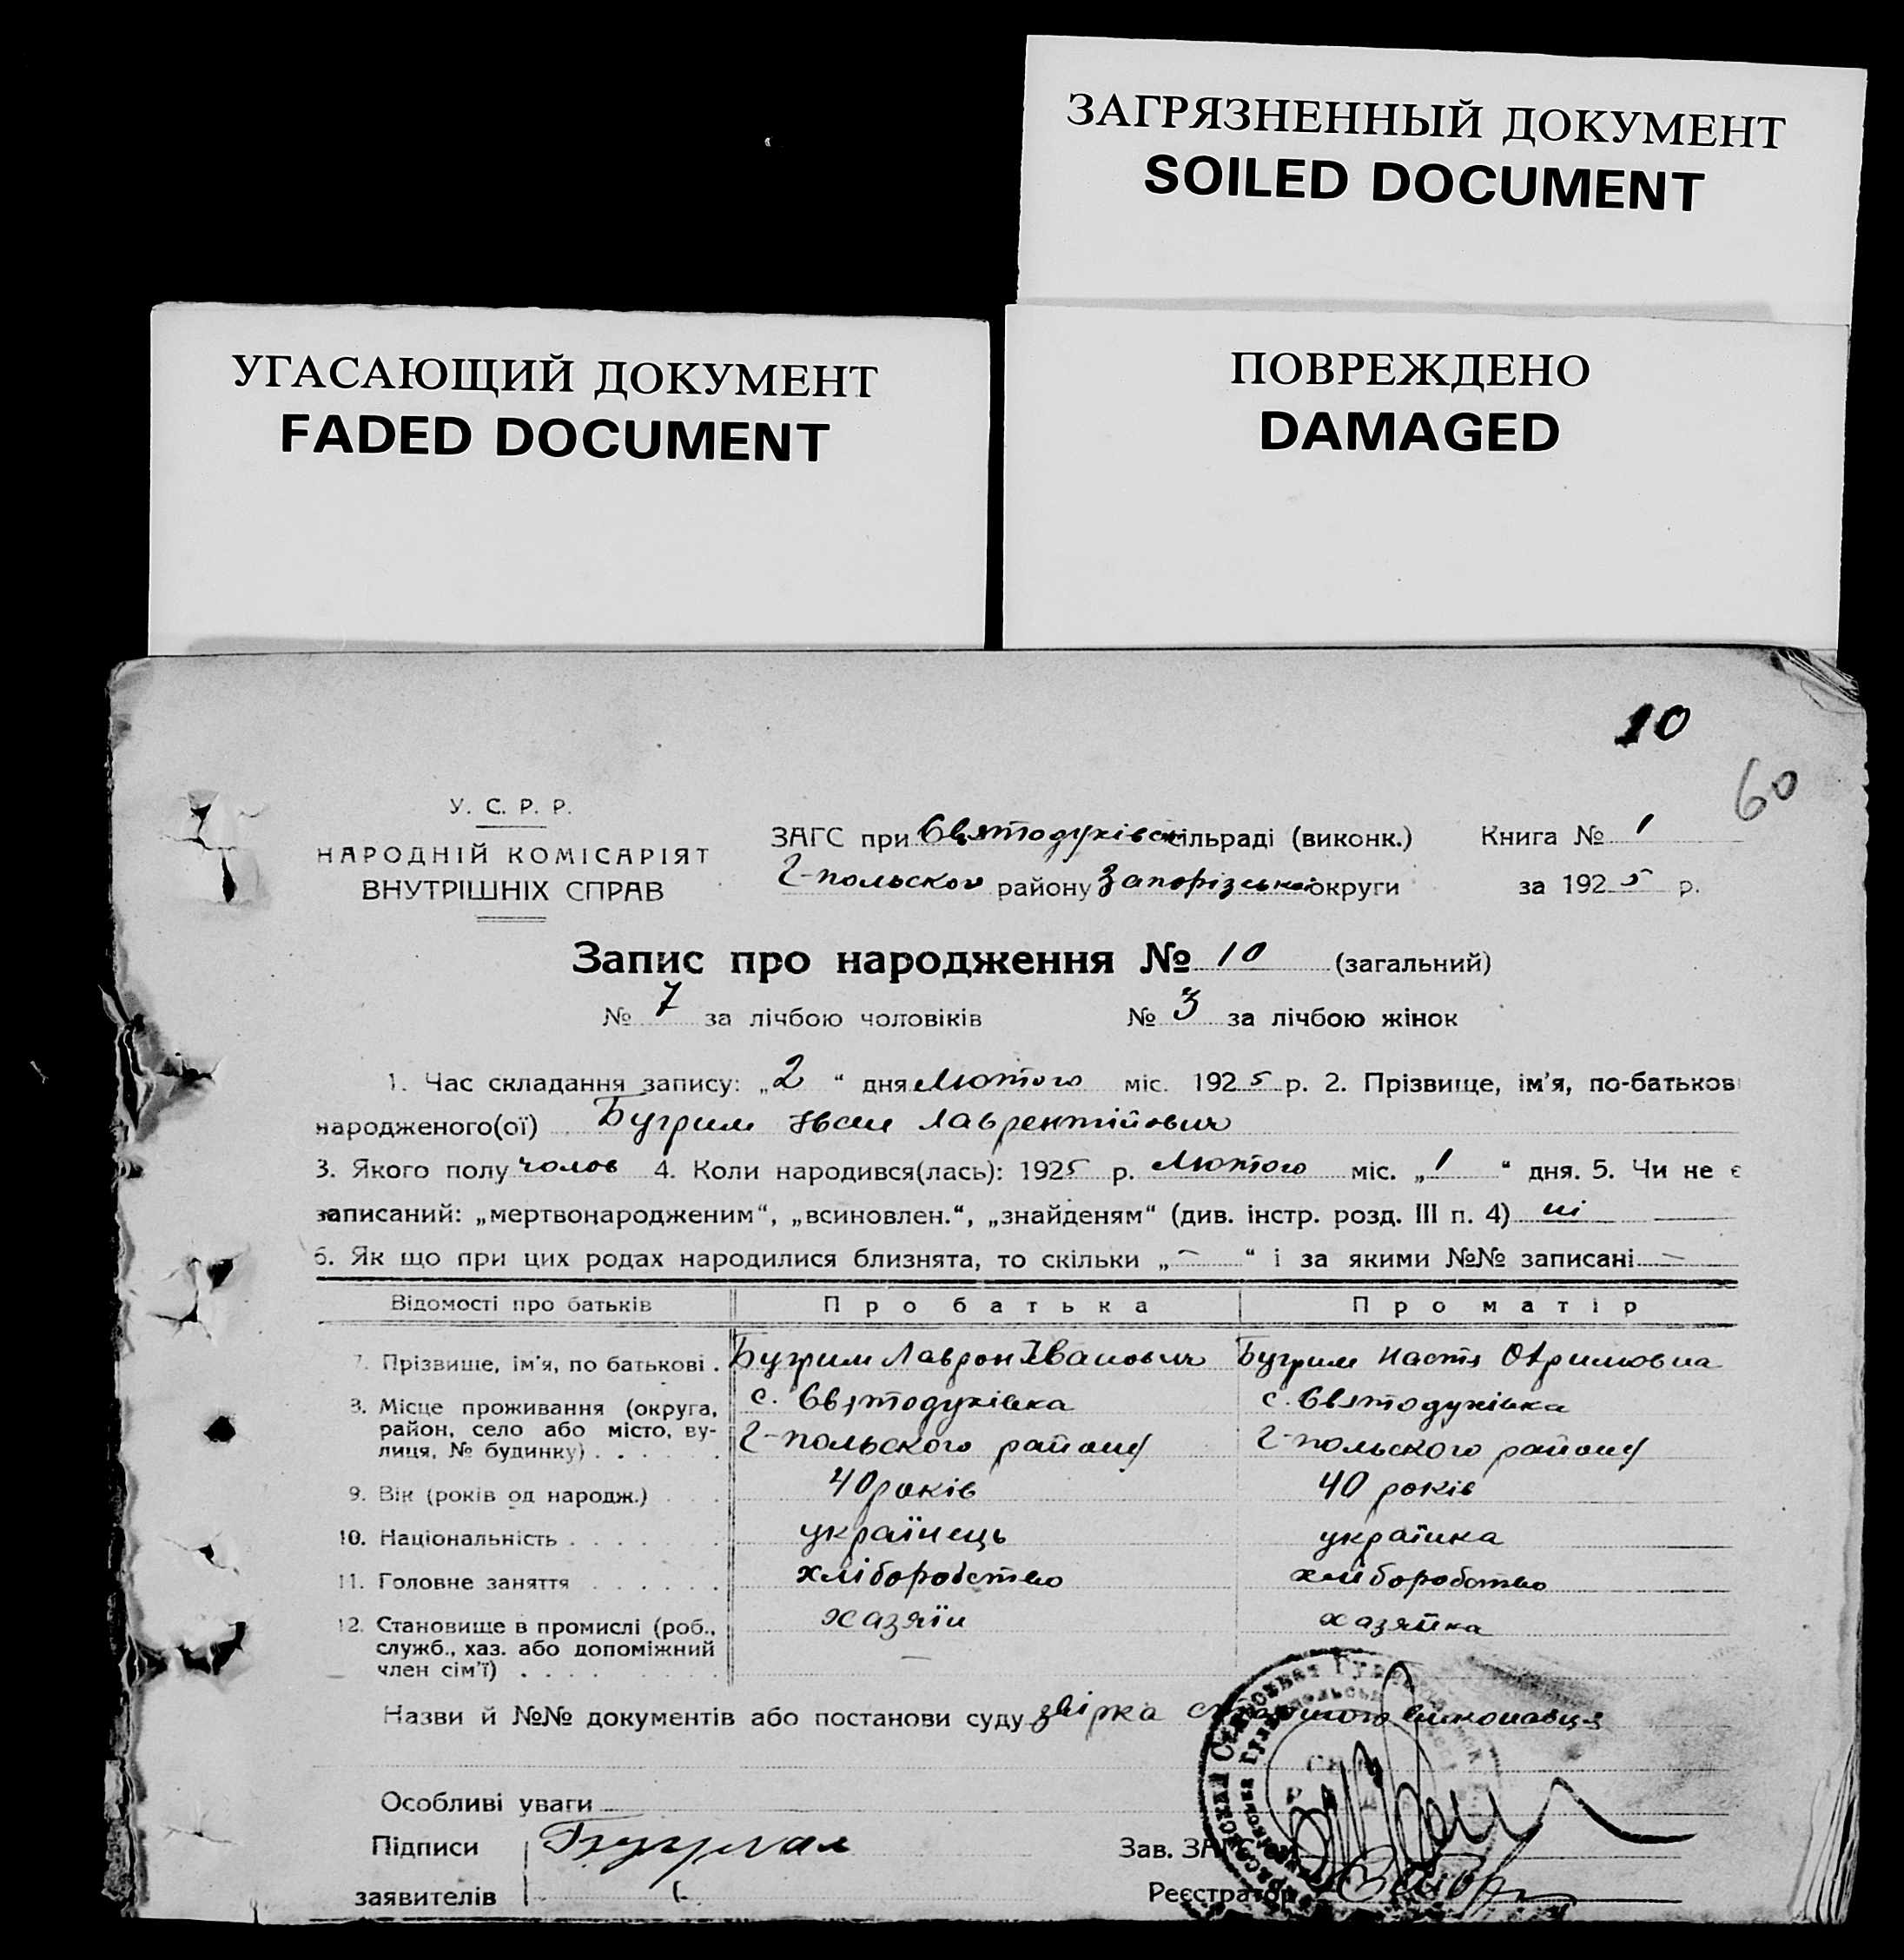 ЗАГРЯЗНЕННЫЙ ДОКУМЕНТ
SOILED DOCUMENT
УГАСАЮЩИЙ ДОКУМЕНТ
FADED DOCUMENT
ПОВРЕЖДЕНО
DAMAGED
10
60
У. С. Р. Р.
НАРОДНІЙ КОМІСАРІЯТ
ВНУТРІШНІХ СПРАВ
ЗАГС при Святодухівск сільраді (виконк.) Книга № 1
Г-польског району Запорізської округи за 1925 р.
Запис про народження № 10 (загальний)
№ 7 за лічбою чоловіків № 3 за лічбою жінок
1. Час складання запису: „2“ дня Лютого міс. 1925 р. 2. Прізвище, ім'я, по-батьков
народженого(ої) Бугрим Іван Лаврентійович
3. Якого полу чолов 4. Коли народився(лась): 1925 р. Лютого міс. „1“ дня. 5. Чи не є
записаний: „мертвонародженим“, „всиновлен.“, „знайденям“ (див. інстр. розд. III п. 4) ні
6. Як що при цих родах народилися близнята, то скільки „—“ і за якими №№ записані —
Відомості про батьків Про батька Про матір
7. Прізвище, ім'я, по батькові . Бугрим Лаврон Іванович Бугрим Настя Охримовна
8. Місце проживання (округа, с. Святодухівка с. Святодухівка
район, село або місто, ву-
лиця, № будинку) . . . . . . Г-польского району Г-польского району
9. Вік (років од народж.) . . . 40 років 40 років
10. Національність . . . . . . . українець українка
11. Головне заняття . . . . . . хліборобство хліборобство
12. Становище в промислі (роб., хазяїн хазяйка
служб., хаз. або допоміжний
член сім'ї) . . . . . . . . .
Назви й №№ документів або постанови суду звірка сільського виконавця
Особливі уваги
Підписи Бугрма Зав. ЗАГС
заявителів Реєстратор